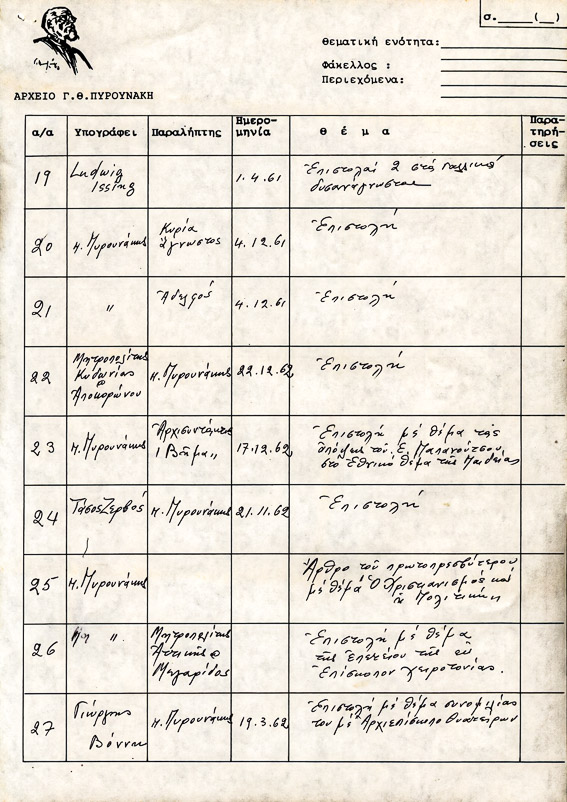 σ.____(__)
θεματική ενότητα:
Φάκελλος :
Περιεχόμενα:
ΑΡΧΕΙΟ Γ.Θ.ΠΥΡΟΥΝΑΚΗ
α/α Υπογράφει Παραλήπτης Ημερο-μηνία θ έ μ α Παρα-τηρή-σεις
19 Ludwig
Issing
1.4.61
Ἐπιστολαί 2 στά Γαλλικά
δυσανάγνωστοι
20 π. Πυρουνάκης
Κυρία
ἄγνωστος
4.12.61 Ἐπιστολή
21 " Ἀδελφός 4.12.61 Ἐπιστολή
22 Μητροπολίτης
Κυδωνίας
&
Αποκορώνου
π. Πυρουνάκης 22.12.62 Ἐπιστολή
23 π. Πυρουνάκης
Ἀρχισυντάκτης
"Βῆμα"
17.12.62
Ἐπιστολή μέ θέμα τάς
ἀπόψεις τοῦ Ε. Παπανούτσου
στό Ἐθνικό θέμα τῆς Παιδείας
24 Τάσος Ζερβός π. Πυρουνάκης 21.11.62 Ἐπιστολή
25 π. Πυρουνάκης
Ἄρθρο τοῦ πρωτοπρεσβύτερου
μέ θέμα Ὁ Χριστιανισμός καί
ἡ Πολιτική
26 "
Μητροπολίτης
Ἀττικῆς &
Μεγαρίδος
Ἐπιστολή μέ θέμα
τῆς τῆς εἰς
Ἐπίσκοπον χειροτονίας.
27 Γιώργης
π. Πυρουνάκης 19.3.62
Ἐπιστολή μέ θέμα συνομιλίας
του μέ Ἀρχιεπίσκοπο Θυατείρων